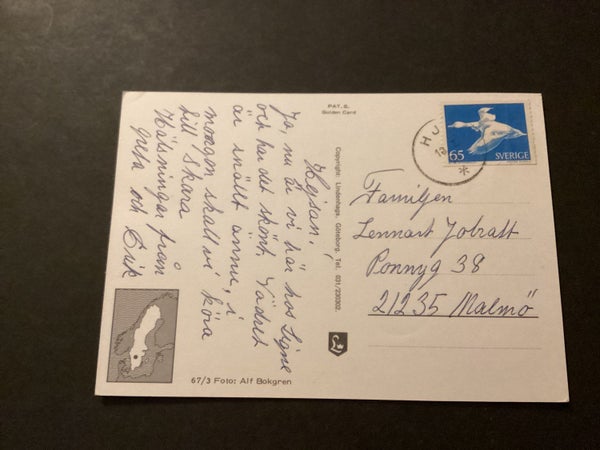 Hejsan!
Ja, nu är vi här hos Signe
och har det skönt. Vädret
är snällt ännu, i
morgon skall vi köra
till Skara
Hälsningar från
Greta och Erik
PAT. S.
Golden Card
Copyright: Lindenhags, Göteborg. Tel. 031/230202.
67/3 Foto: Alf Bokgren
HJ
65
SVERIGE
Familjen
Lennart
Ponnyg 38
21235 Malmö